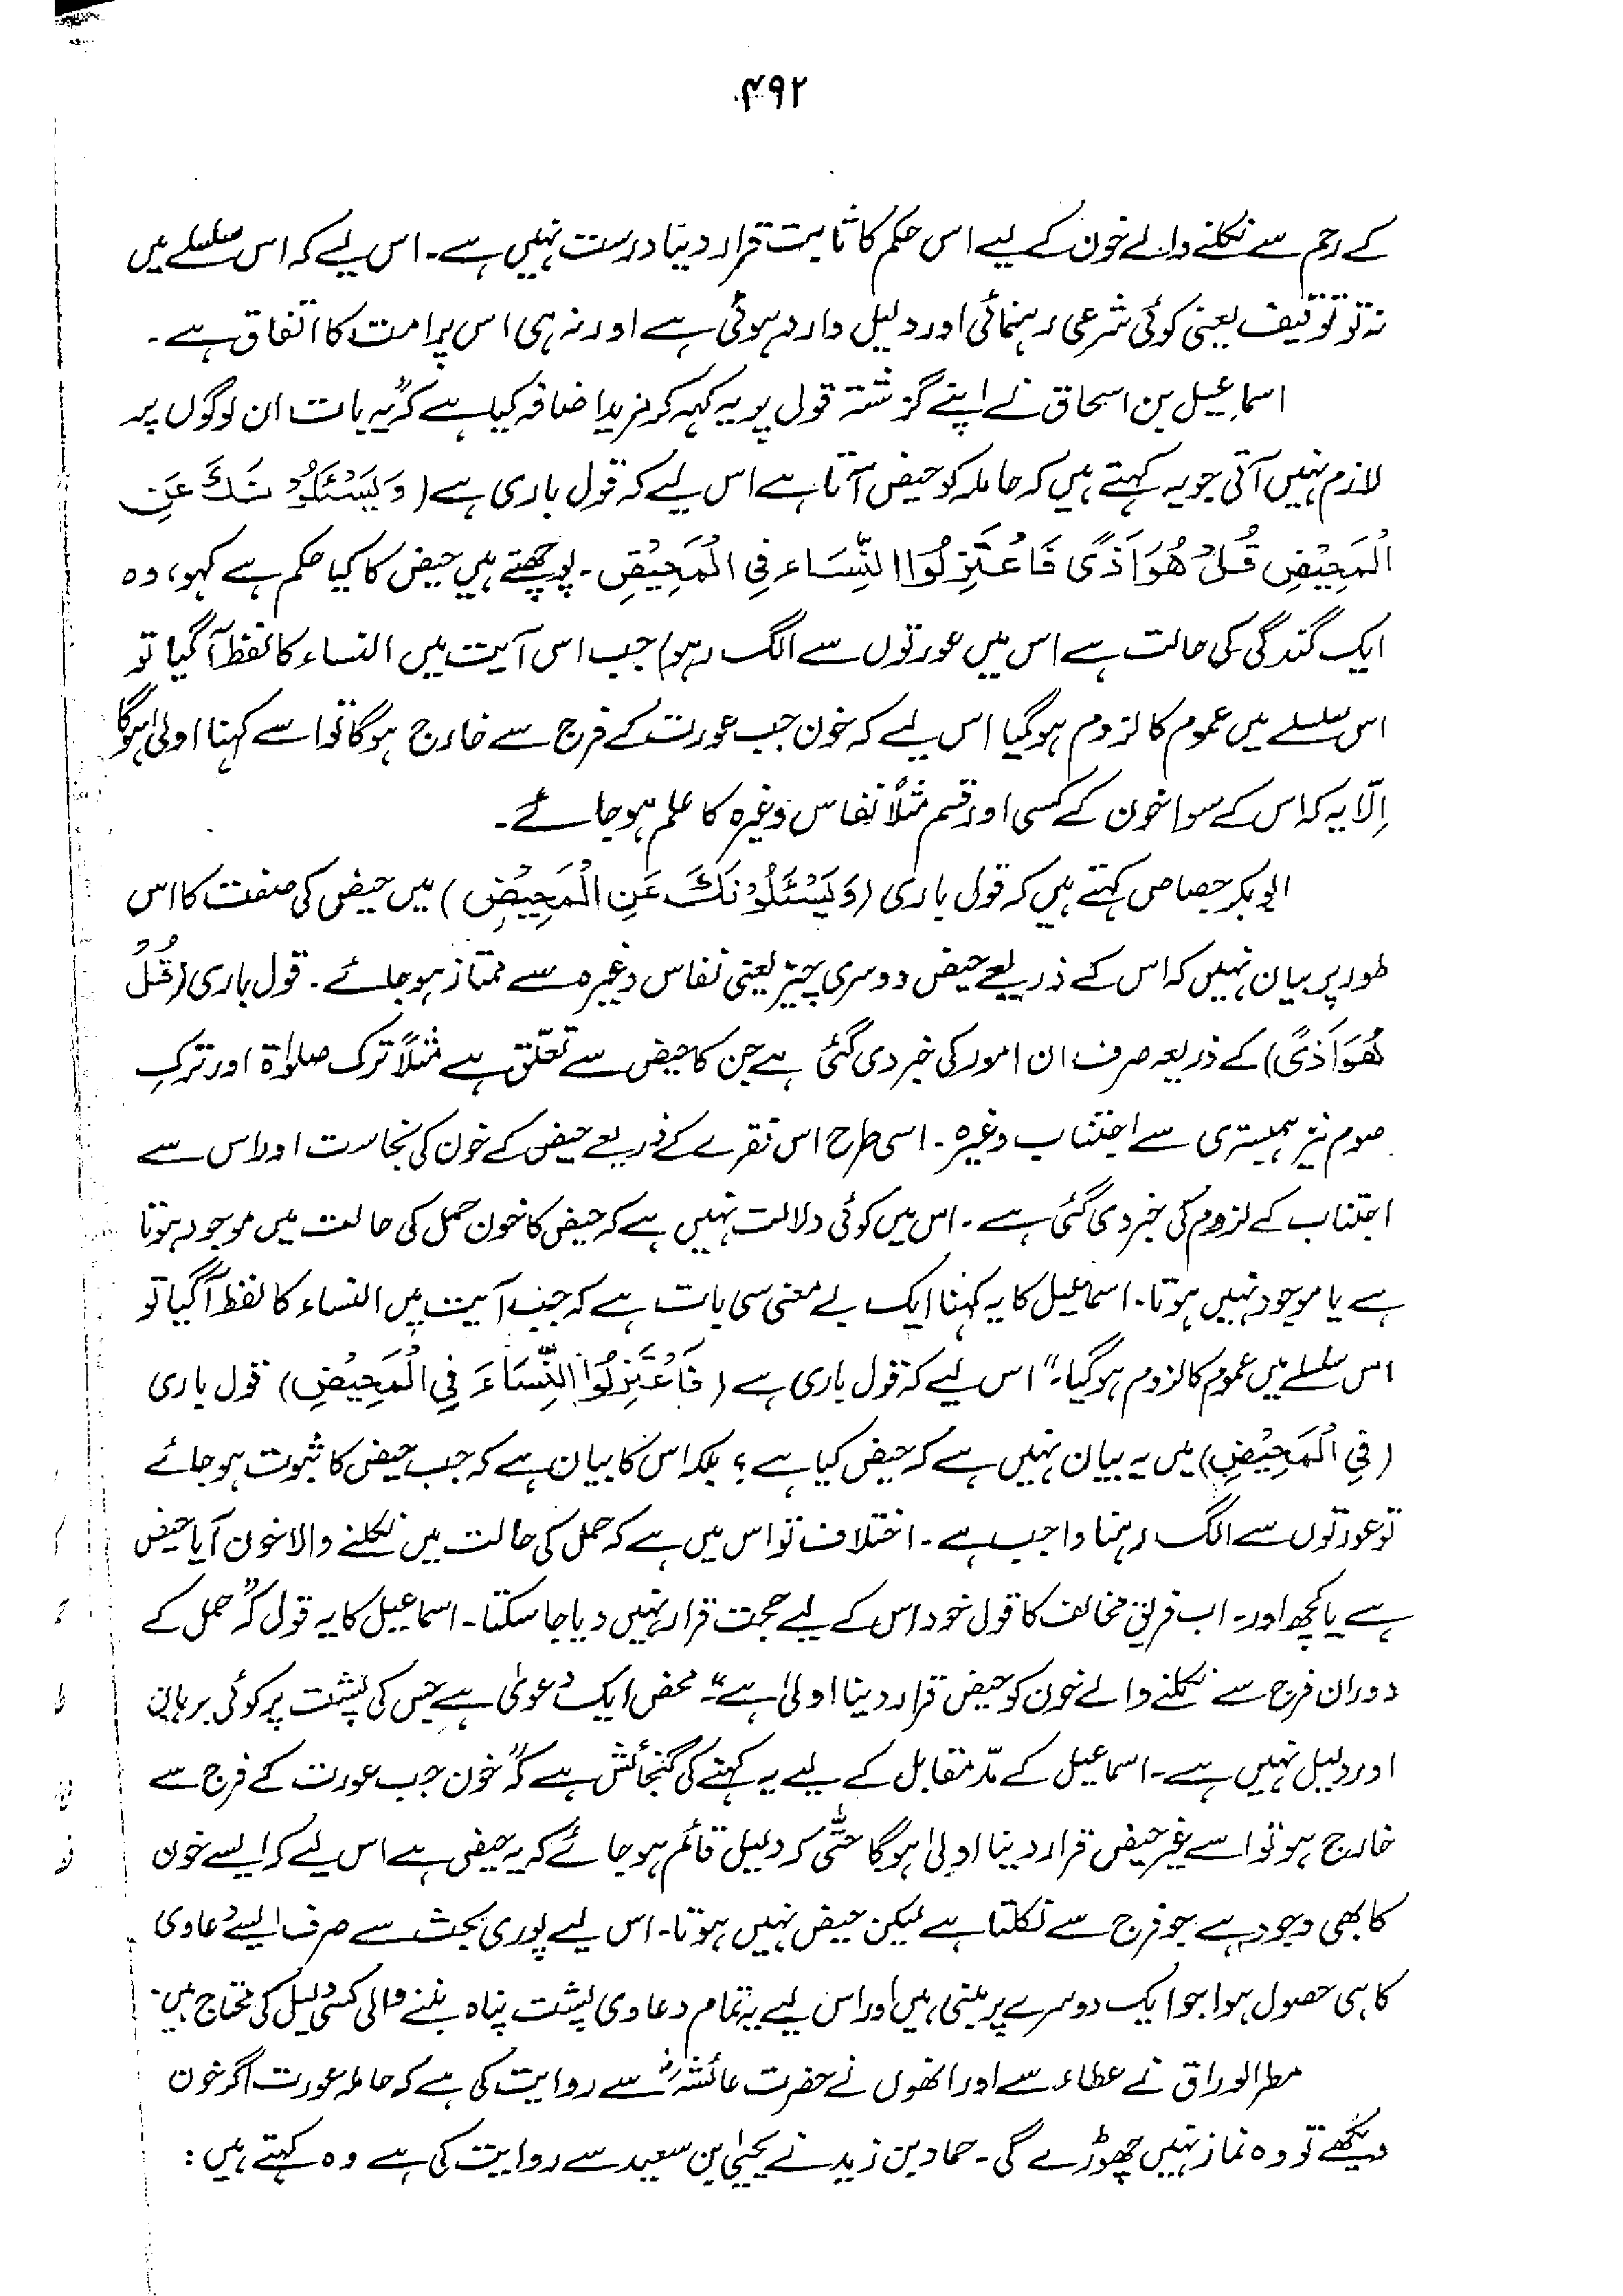 ۴۹۲
کے رحم سے نکلنے والے خون کے لیے اس حکم کا ثابت قرار دینا درست نہیں ہے۔ اس لیے کہ اس سلسلے میں
نہ تو توقیف یعنی کوئی شرعی رہنمائی اور دلیل وارد ہوئی ہے اور نہ ہی اس پر امت کا اتفاق ہے۔
اسماعیل بن اسحاق نے اپنے گزشتہ قول پر یہ کہہ کر مزید اضافہ کیا ہے کہ "یہ بات ان لوگوں پر
لازم نہیں آتی جو یہ کہتے ہیں کہ حاملہ کو حیض آتا ہے اس لیے کہ قول باری ہے (وَيَسْئَلُوْنَكَ عَنِ
الْمَحِيْضِ قُلْ هُوَ اَذًى فَاعْتَزِلُوا النِّسَاء فِی الْمَحِيْضِ۔ پوچھتے ہیں حیض کا کیا حکم ہے کہو، وہ
ایک گندگی کی حالت ہے اس میں عورتوں سے الگ رہو) جب اس آیت میں النساء کا لفظ آگیا تو
اس سلسلے میں عموم کا لزوم ہوگیا اس لیے کہ خون جب عورت کے فرج سے خارج ہوگا تو اسے کہنا اولیٰ ہوگا
اِلّا یہ کہ اس کے سوا خون کے کسی اور قسم مثلاً نفاس وغیرہ کا علم ہو جائے۔
ابوبکر جصاص کہتے ہیں کہ قول باری (وَيَسْئَلُوْنَكَ عَنِ الْمَحِيْضِ) میں حیض کی صفت کا اس
طور پر بیان نہیں کہ اس کے ذریعے حیض دوسری چیز یعنی نفاس وغیرہ سے ممتاز ہو جائے۔ قول باری (قُلْ
هُوَ اَذًى) کے ذریعہ صرف ان امور کی خبر دی گئی ہے جن کا حیض سے تعلّق ہے مثلاً ترک صلوٰۃ اور ترکِ
صوم نیز ہمبستری سے اجتناب وغیرہ۔ اسی طرح اس فقرے کے ذریعے حیض کے خون کی نجاست اور اس سے
اجتناب کے لزوم کی خبر دی گئی ہے۔ اس میں کوئی دلالت نہیں ہے کہ حیض کا خون حمل کی حالت میں موجود ہوتا
ہے یا موجود نہیں ہوتا۔ اسماعیل کا یہ کہنا ایک بے معنی سی بات ہے کہ جب آیت میں النساء کا لفظ آگیا تو
اس سلسلے میں عموم کا لزوم ہوگیا۔" اس لیے کہ قول باری ہے (فَاعْتَزِلُوا النِّسَاءَ فِی الْمَحِيْضِ) قول باری
(فِی الْمَحِيْضِ) میں یہ بیان نہیں ہے کہ حیض کیا ہے؟ بلکہ اس کا بیان ہے کہ جب حیض کا ثبوت ہو جائے
تو عورتوں سے الگ رہنا واجب ہے۔ اختلاف تو اس میں ہے کہ حمل کی حالت میں نکلنے والا خون آیا حیض
ہے یا کچھ اور۔ اب فریق مخالف کا قول خود اس کے لیے حجت قرار نہیں دیا جا سکتا۔ اسماعیل کا یہ قول کہ "حمل کے
دوران فرج سے نکلنے والے خون کو حیض قرار دینا اولیٰ ہے"۔ محض ایک دعویٰ ہے جس کی پشت پر کوئی برہان
اور دلیل نہیں ہے۔ اسماعیل کے مدّ مقابل کے لیے یہ کہنے کی گنجائش ہے کہ "خون جب عورت کے فرج سے
خارج ہو تو اسے غیر حیض قرار دینا اولیٰ ہوگا حتّٰی کہ دلیل قائم ہو جائے کہ یہ حیض ہے اس لیے کہ ایسے خون
کا بھی وجود ہے جو فرج سے نکلتا ہے لیکن حیض نہیں ہوتا۔ اس لیے پوری بحث سے صرف ایسے دعاوی
کا ہی حصول ہوا جو ایک دوسرے پر مبنی ہیں اور اس لیے یہ تمام دعاوی پشت پناہ بننے والی کسی دلیل کی محتاج ہیں۔
مطر الوراق نے عطاء سے اور انھوں نے حضرت عائشہؓ سے روایت کی ہے کہ حاملہ عورت اگر خون
دیکھے تو وہ نماز نہیں چھوڑے گی۔ حماد بن زید نے یحییٰ بن سعید سے روایت کی ہے وہ کہتے ہیں: